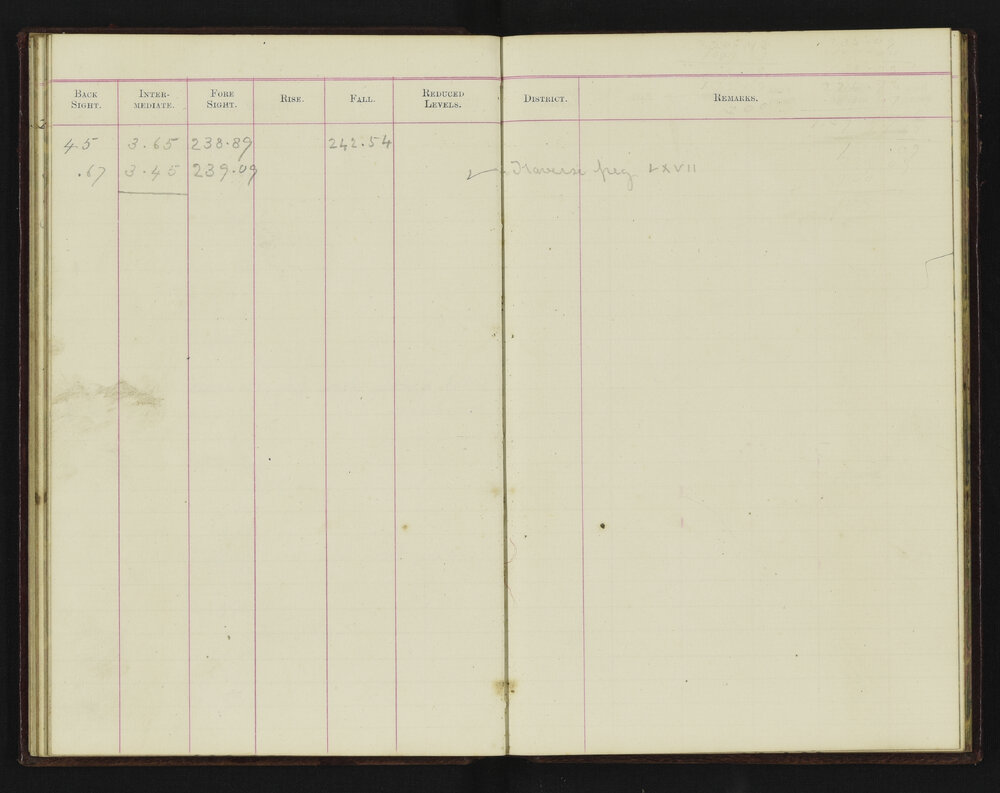 BACK SIGHT. INTER-MEDIATE. FORE SIGHT. RISE. FALL. REDUCED LEVELS. DISTRICT. REMARKS.
45 3.65 238.89 242.54
.67 3.45 239.09 Traverse peg LXVII